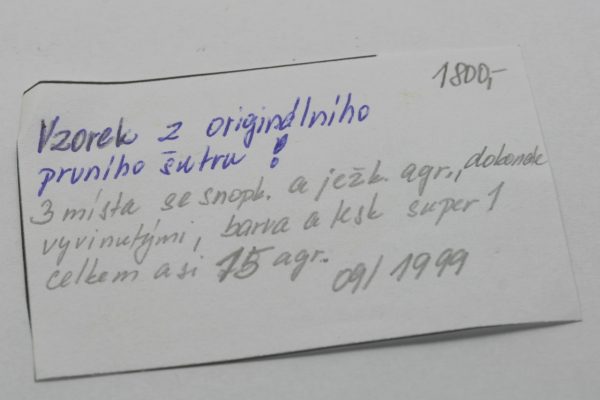 1800,-
Vzorek z originálního
prvního šutru !
3 místa se snopk. a ježk. agr., dokonale
vyvinutými, barva a lesk super 1
celkem asi 15 agr.
09/1999